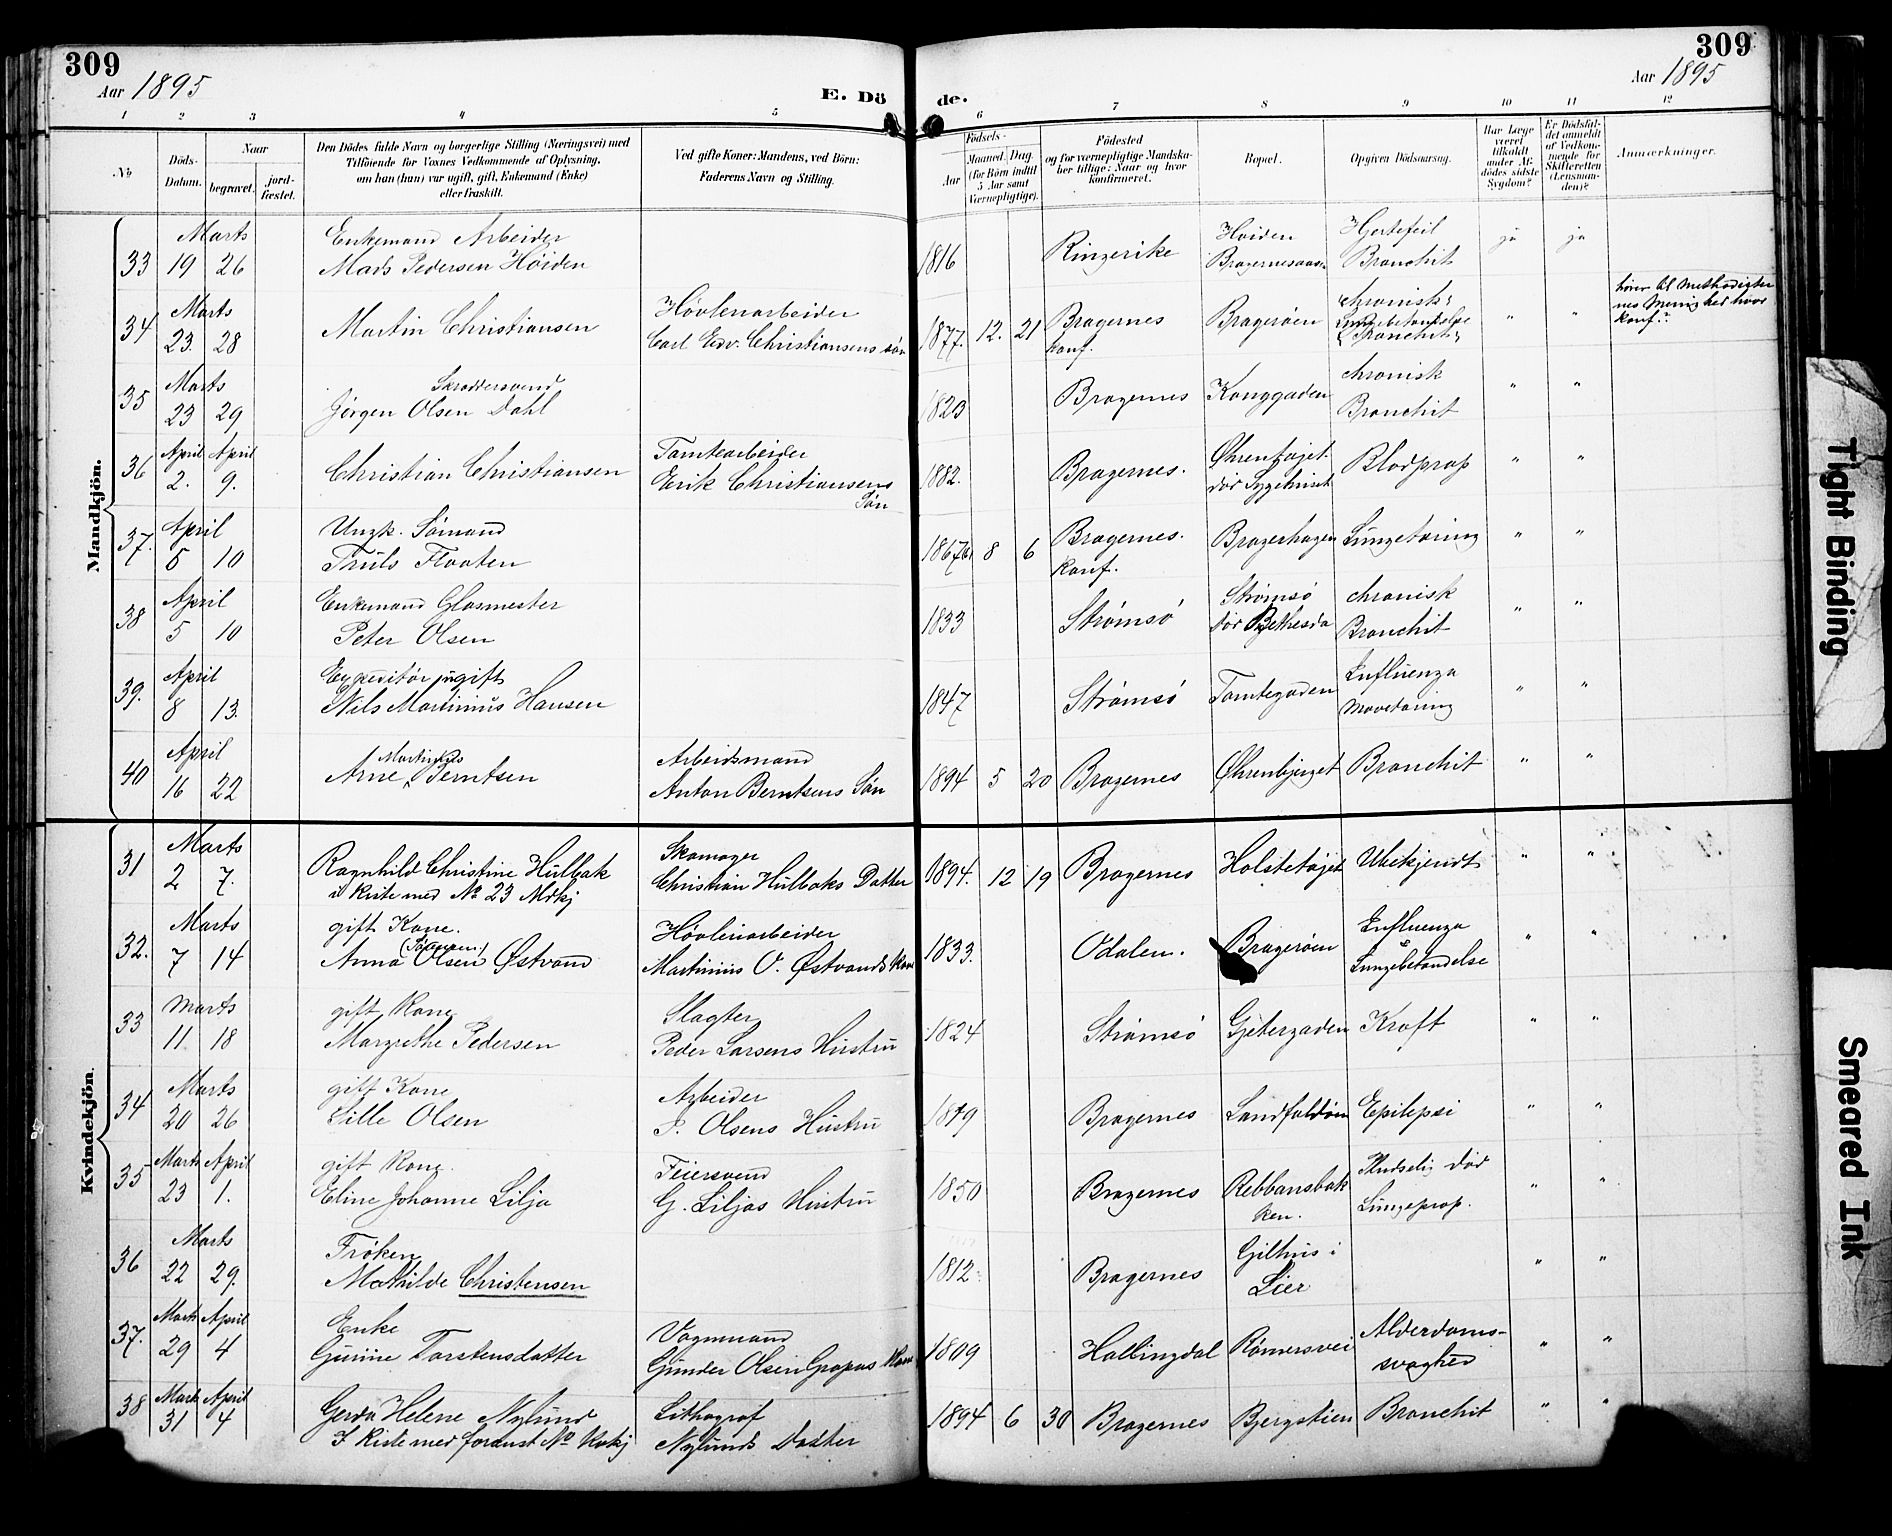 309
309
Aar 1895
Aar 1895
E. Dö
de.
1 2 3 4 5 6 7 8 9 10 11 12
No
Döds-Datum.
Naar
begravet.
jord-fæstet.
Den Dödes fulde Navn og borgerlige Stilling (Næringsvei) med
Tilföiende for Voxnes Vedkommende af Oplysning,
om han (hun) var ugift, gift, Enkemand (Enke)
eller fraskilt.
Ved gifte Koner: Mandens, ved Börn:
Faderens Navn og Stilling.
Födsels-
Aar
Maaned. Dag.
(for Börn indtil
5 Aar samt
Værnepligtige).
Födested
og for værnepligtige Mandska-
ber tillige: Naar og hvor
konfirmeret.
Bopæl.
Opgiven Dödsaarsag.
Har Læge
været
tilkaldt
under Af-
dödes sidste
Sygdom?
Er Dödsfal-
det anmeldt
af Vedkom-
mende for
Skifteretten
(Lensman-
den)?
Anmærkninger.
Mandkjön.
33 Marts 19 26 Enkemand Arbeider
Mads Pedersen Høiden 1816 Ringerike Høiden
Bragernesaas Hjertefeil
Bronchit ja ja
34 Marts 23. 28 Martin Christiansen Høvlenarbeider
Carl Edv. Christiansens søn 1877. 12. 21 Bragernes
konf. Bragerøen chronisk
Lungebetændelse
Bronchit " " hører til Methodister
nes Menighed hvor
konf.?
35 Marts 23 29 Skræddersvend
Jørgen Olsen Dahl 1823 Bragernes Konggaden chronisk
Bronchit " "
36 April 2. April 9. Christian Christiansen Tomtearbeider
Erik Christiansens
Søn 1882. Bragernes. Øhrenhøjet
dør Sygehuset Blodprop " "
37. April 5 10 Ungk. Sømand
Truls Flaaten 1867 8 6 Bragernes.
konf. Bragerhagen Lungetæring " "
38 April 5 10 Enkemand Glasmester
Peter Olsen 1833 Strømsø Strømsø
dør Bethesda chronisk
Bronchit " "
39. April 8 13. Expeditør ugift
Nils Martinius Hansen 1847 Strømsø Tomtegaden Influenza
Mavetæring " "
40 April 16 22 Martinius
Arne Berntsen Arbeidsmand
Anton Berntsens Søn 1894 5 20 Bragernes Øhrenbjerget Bronchit " "
Kvindekjön.
31 Marts 2 7. Ragnhild Christine Hulbak
i kiste med No 23 Mdkj Skomager
Christian Hulbaks Datter 1894. 12 19 Bragernes Holstetøjet Ubekjendt " "
32. Marts 7 14 gift Kone.
Anna Olsen Østvand Høvleriarbeider
Martinius O. Østvands Kone 1833. Odalen. Bragerøen Influenza
&
Lungebetændelse " "
33 Marts 11. 18 gift Kone
Margrethe Pedersen Slagter
Peder Larsens Hustru 1824 Strømsø Gjetergaden Kræft " "
34 Marts 20 26 gift Kone
Lille Olsen Arbeider
P. Olsens Hustru 1849 Bragernes Landfaldøen Epilepsi " "
35 Marts 23 April 1. gift Kone.
Eline Johanne Lilja Feiersvend
G. Liljas Hustru 1850 Bragernes Rebbansbak
ken. Pludselig død
Lungeprop. " "
36 Marts 22 29. Frøken
Mathilde Christensen 1812 Bragernes Gilhus i
Lier " "
37. Marts 29 April 4 Enke
Gurine Torstensdatter Vognmand
Gunder Olsen Kone 1809 Hallingdal Rømersvei Alderdoms-
svaghed " "
38 Marts 31 April 4 Gerda Helene Nylund
I kiste med foranst No Kvkj Lithograf
Nylunds Datter 1894 6 30 Bragernes Bjergstien Bronchit " "
Tight Binding
Smeared Ink